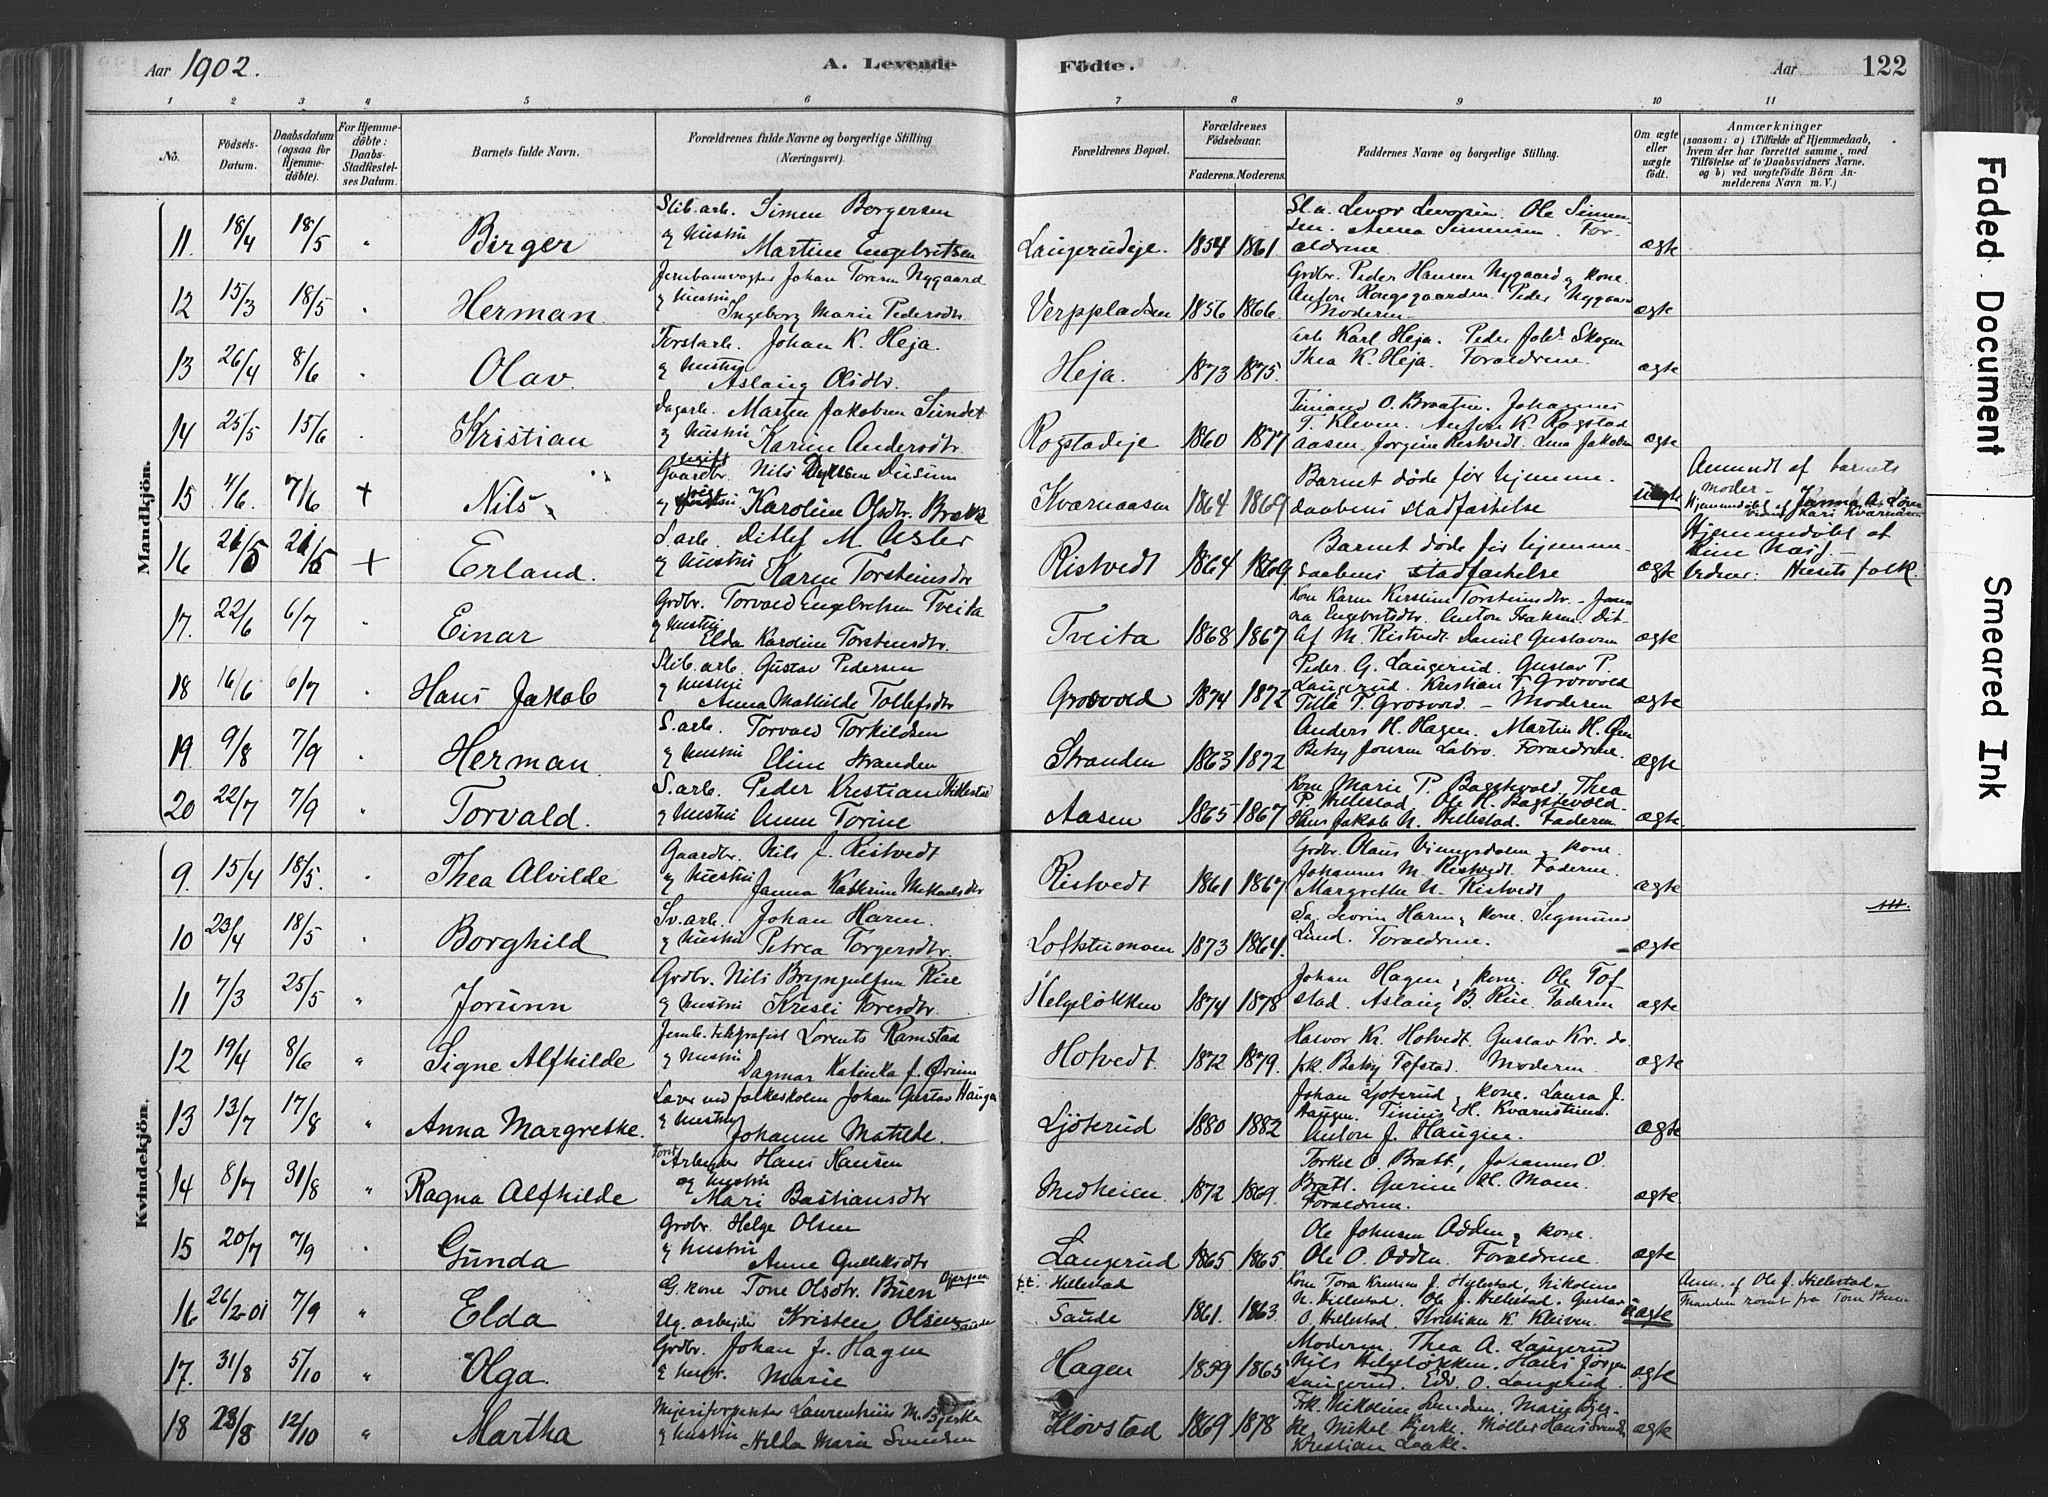 Aar 1902.
A. Levende
Födte.
Aar
122
1 2 3 4 5 6 7 8 9 10 11
No.
Födsels-Datum.
Daabsdatum (ogsaa for Hjemme-döbte).
For Hjemme-döbte: Daabs-Stadfæstel-ses Datum.
Barnets fulde Navn.
Forældrenes fulde Navne og borgerlige Stilling (Næringsvei).
Forældrenes Bopæl.
Forældrenes Födselsaar.
Faderens. Moderens.
Faddernes Navne og borgerlige Stilling.
Om ægte eller uægte födt.
Anmærkninger
(saasom: a) i Tilfælde af Hjemmedaab, hvem der har forrettet samme, med Tilföielse af to Daabsvidners Navne, og b) ved uægtefödte Börn An-melderens Navn m. V.)
Mandkjön.
11. 18/4 18/5 " Birger
Slib.arb. Simen Borgersen
og Hustru Martine Engebretsen
Langerudeje. 1854 1861
Ole Simen-
sen. Anna Simensen. For-
ældrene
ægte
12 15/3 18/5 " Herman
Jernbanevogter Johan Toresen Nygaard
og Hustru Ingeborg Marie Pedersdtr.
Verppladsen 1856 1866
Grdbr. Peder Hansen Nygaard og kone.
Anton Kongsgaarden. Peder Nygaard
Moderen
ægte
13 26/4 8/6 " Olav
Forstarb. Johan K. Heja.
og Hustru Aslaug Olsdtr.
Heja. 1873 1875.
arb Karl Heja. Peder Johs Skogen
Thea K. Heja. Forældrene.
ægte
14 25/5 15/6 " Kristian
Dagarb. Marten Jakobsen Sundet
og Hustru Karine Andersdtr.
Rogstadeje 1860 1877
O. Braaten. Johannes
T. Kleven. Anton K. Rogstad
aasen. Jorgine Ristvedt. Lina Jakobsen
ægte
15 4/6. 7/6 + Nils
Gaardbr. Nils
Karoline Olsdtr. Brekk
Kvarnaasen 1864 1869
Barnet døde før hjemme-
daabens stadfæstelse
uægte
Anmeldt af barnets
moder -
16 21/5 21/5 + Erland.
S.arb. Ditlef M. Usler
og Hustru Karen Torsteinsdtr
Ristvedt 1864 1869
Barnet døde før hjemme-
daabens stadfæstelse
ægte
Hjemmedøbt af
17. 22/6 6/7 " Einar
Grdbr. Torvald Engebretsen Tveita
og Hustru Elda Karoline Torsteinsdtr.
Tveita 1868 1867
Kone Karen Kirstine Torsteinsdtr.
Engebretsdtr. Anton Isaksen. Dit-
lef M. Ristvedt. Daniel Gustavsen
ægte
18 16/6 6/7 " Hans Jakob
Slib.arb. Gustav Pedersen
og Hustru Anna Mathilde Tollefsdtr
Grosvold 1874 1872
Peder G. Langerud. Gustav P.
Langerud. Kristian T. Grosvold
Tilla T. Grosvold. - Moderen
ægte
19. 9/8 7/9 . Herman
S.arb. Torvald Torkildsen
og Hustru Eline Stranden
Stranden 1863 1872
Anders H. Hagen. Martin H.
Betzy Jonsen Labro. Forældrene.
ægte
20 22/7 7/9 " Torvald.
S.arb. Peder Kristian Hillestad
og Hustru Anne Torine
Aasen 1865 1867
Kone Marie P. Bagstevold. Thea
P. Hillestad. Ole K. Bagstevold.
Hans Jakob N. Hillestad. Faderen
ægte.
Kvindekjön.
9. 15/4 18/5. " Thea Alvilde
Gaardbr. Nils J. Ristvedt
og Hustru Janna Kathrine Mikaelsdtr
Ristvedt 1861 1867
Grdbr. Olaus Vinugsdalen og kone.
Johannes M. Ristvedt. Faderen.
Margrethe N. Ristvedt
ægte
10 23/4 18/5 " Borghild
Sv.arb. Johan Harm.
og Hustru Petrea Torgersdtr.
Lofstumoen 1873 1864.
Sa. Severin Harm og kone. Sigmund
Lund. Forældrene.
ægte
11 7/3 25/5 " Jorunn
Grdbr. Nils Bryngulfsen Rue
og Hustru Kresti Toresdtr.
Helgeløkken 1874 1878
Johan Hagen og kone. Ole Tof
stad. Aslaug B. Rue. Faderen
ægte
12 19/4 8/6 " Signe Alfhilde
Jernb. telegrafist Lorents Ramstad
og Hustru Dagmar Katinka f. Øvrum
Hotvedt 1872 1879.
Halvor Kr. Hotvedt. Gustav Kr. do.
frk. Betzy Tofstad. Moderen
ægte
13 13/7 17/8 " Anna Margrethe.
Lærer ved folkeskolen Johan Gustav Haugen
og Hustru Johanne Matilde.
Ljøterud 1880 1882
Johan Ljøterud og kone. Laura J.
Haugen. Tinius H. Kvarnstuen.
Anton J. Haugen.
ægte
14 8/7 31/8 " Ragna Alfhilde
Forst Arbejder Hans Hansen
og Hustru Mari Bastiansdtr
Medheien. 1872 1869.
Torkel O. Bratt, Johannes O.
Bratt. Gurine H. Moen.
Forældrene.
ægte
15 20/7 7/9 . Gunda
Grdbr. Helge Olsen
og Hustru Anne Gulleksdtr
Langerud 1865 1865
Ole Johnsen Odden og kone.
Ole O. Odden. Forældrene
ægte
16 26/2-01 7/9 " Elda
G. kone Tone Olsdtr. Buen Gjerpen
Ug. arbejder Kristen Olsen Saude
p.t. Hillestad
Saude 1861. 1863.
N. Hillestad. Ole J. Hillestad. Gustav
O. Hillestad. Kristian K. Kleven.
uægte
Anm. af Ole J. Hillestad.
Manden rømt fra Tone Buen
17. 31/8 5/10 " Olga
Grdbr. Johan Js. Hagen
og Hustr. Marie
Hagen 1859 1865
Moderen. Thea A. Langerud
Nils Helgeløkken. Hans Jørgen
Langerud. Edv. O. Langerud.
ægte
18 23/8 12/10 " Martha
Mejeriforpagter Laurenhius M. Bjerke
og Hustru Hilda Marie Svendsen
Kløvstad 1869 1878
Frk. Nikoline Lunden. Marie Bjer-
ke. Mikal Bjerke. Møller Hans Svends
Kristian Laake.
ægte
Faded Document
Smeared Ink